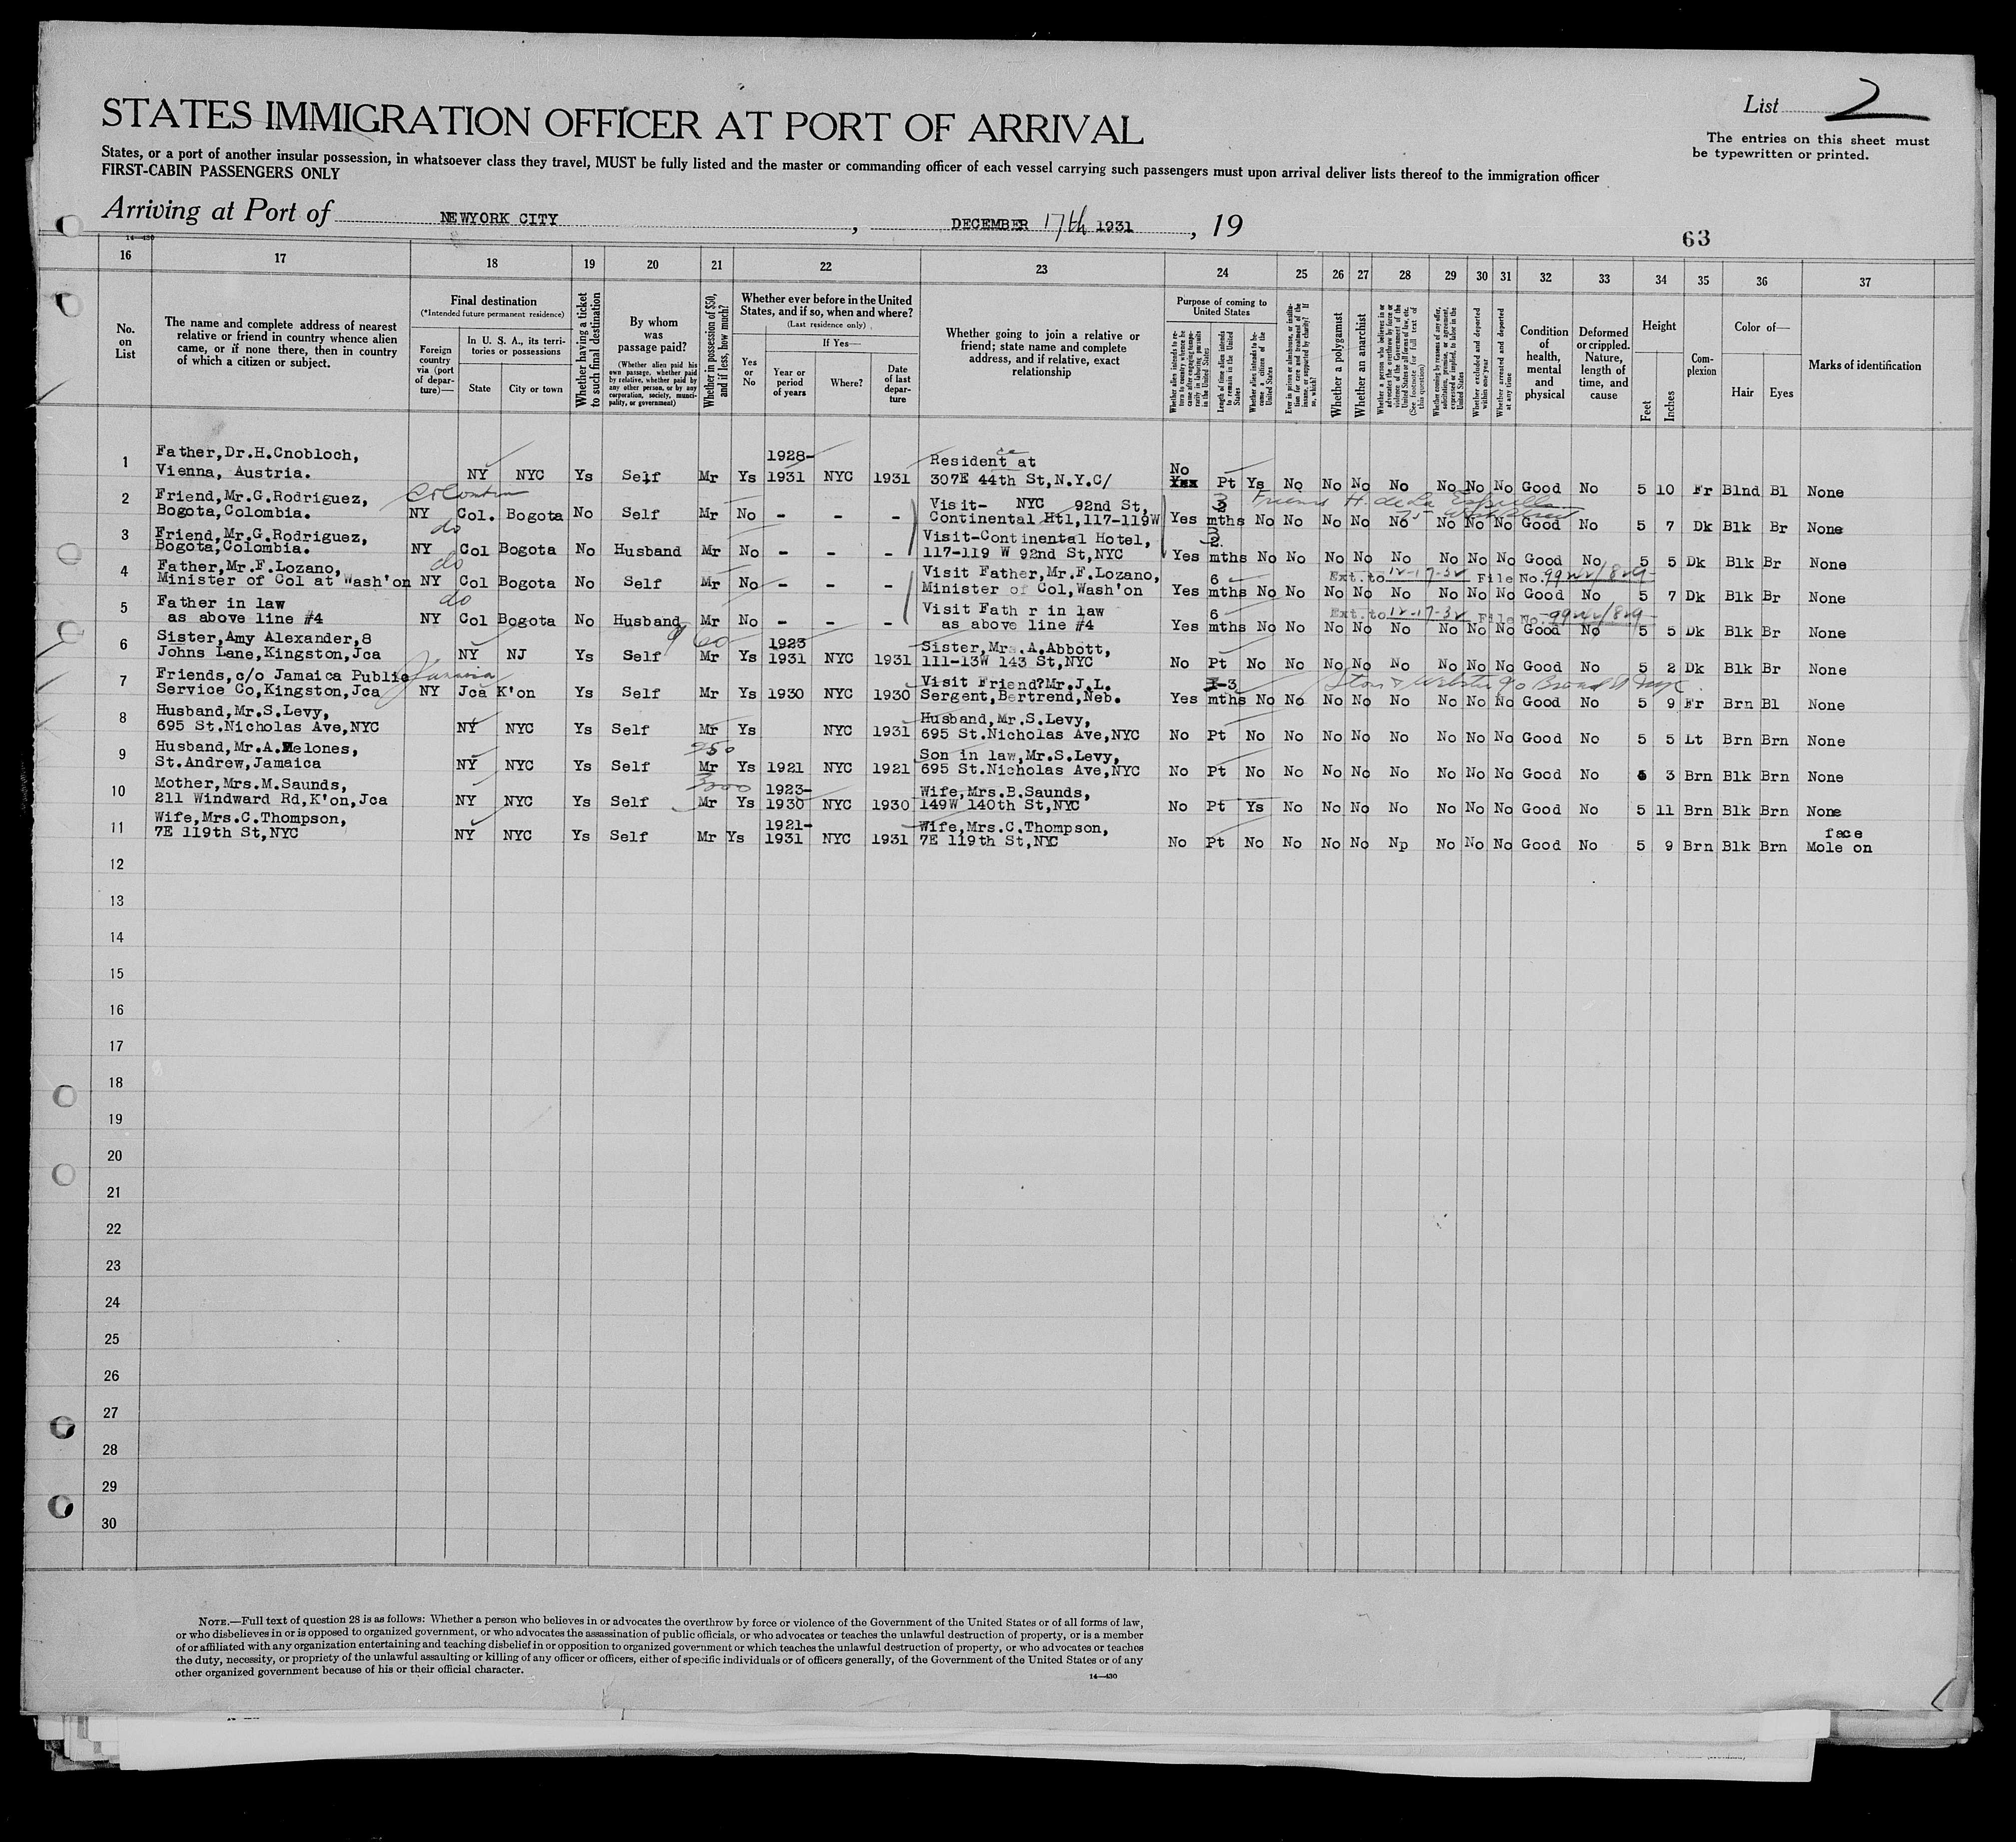 List 2
STATES IMMIGRATION OFFICER AT PORT OF ARRIVAL
The entries on this sheet must
be typewritten or printed.
States, or a port of another insular possession, in whatsoever class they travel, MUST be fully listed and the master or commanding officer of each vessel carrying such passengers must upon arrival deliver lists thereof to the immigration officer
FIRST-CABIN PASSENGERS ONLY
Arriving at Port of NEWYORK CITY, DECEMBER 17th 1931, 19
63
14—430
16 17 18 19 20 21 22 23 24 25 26 27 28 29 30 31 32 33 34 35 36 37
No. on List
The name and complete address of nearest relative or friend in country whence alien came, or if none there, then in country of which a citizen or subject.
Final destination
(*Intended future permanent residence)
Foreign country via (port of departure)—
In U. S. A., its territories or possessions
State
City or town
Whether having a ticket to such final destination
By whom was passage paid?
(Whether alien paid his own passage, whether paid by relative, whether paid by any other person, or by any corporation, society, municipality, or government)
Whether in possession of $50, and if less, how much?
Whether ever before in the United States, and if so, when and where?
(Last residence only)
Yes or No
If Yes—
Year or period of years
Where?
Date of last departure
Whether going to join a relative or friend; state name and complete address, and if relative, exact relationship
Purpose of coming to United States
Whether alien intends to return to country whence he came after engaging temporarily in laboring pursuits in the United States
Length of time alien intends to remain in the United States
Whether alien intends to become a citizen of the United States
Ever in prison or almshouse, or institution for care and treatment of the insane, or supported by charity? If so, which?
Whether a polygamist
Whether an anarchist
Whether a person who believes in or advocates the overthrow by force or violence of the Government of the United States or all forms of law, etc. (See footnote for full text of this question)
Whether coming by reasons of any offer, solicitation, promise, or agreement, expressed or implied, to labor in the United States
Whether excluded and deported within one year
Whether arrested and deported at any time
Condition of health, mental and physical
Deformed or crippled. Nature, length of time, and cause
Height
Feet
Inches
Complexion
Color of—
Hair
Eyes
Marks of identification
1 Father,Dr.H.Cnobloch, 1928- Resident at No
Vienna, Austria. NY NYC Ys Self Mr Ys 1931 NYC 1931 307E 44th St,N.Y.C/ Yes Pt Ys No No No No No No No Good No 5 10 Fr Blnd Bl None
2 Friend,Mr.G.Rodriguez, Visit- NYC 92nd St, 3 Friend H. de la
Bogota,Colombia. NY Col. Bogota No Self Mr No - - - Continental Htl,117-119W Yes mths No No No No No No No No Good No 5 7 Dk Blk Br None
3 Friend,Mr.G.Rodriguez, do Visit-Continental Hotel,
Bogota,Colombia. NY Col Bogota No Husband Mr No - - - 117-119 W 92nd St,NYC Yes mths No No No No No No No No Good No 5 5 Dk Blk Br None
4 Father,Mr.F.Lozano, do Visit Father,Mr.F.Lozano, 6 Ext. to 12-17-32 File No.
Minister of Col at Wash'on NY Col Bogota No Self Mr No - - - Minister of Col,Wash'on Yes mths No No No No No No No No Good No 5 7 Dk Blk Br None
5 Father in law do Visit Fath r in law 6 Ext. to 12-17-32 File No.
as above line #4 NY Col Bogota No Husband Mr No - - - as above line #4 Yes mths No No No No No No No No Good No 5 5 Dk Blk Br None
6 Sister,Amy Alexander,8 60 1923 Sister,Mrs.A.Abbott,
Johns Lane,Kingston,Jca NY NJ Ys Self Mr Ys 1931 NYC 1931 111-13W 143 St,NYC No Pt No No No No No No No No Good No 5 2 Dk Blk Br None
7 Friends,c/o Jamaica Public Jamaica Visit Friend?Mr.J.L. 1-3 Stone & Webster 90 Broad St NYC.
Service Co,Kingston,Jca NY Jca K'on Ys Self Mr Ys 1930 NYC 1930 Sergent,Bertrend,Neb. Yes mths No No No No No No No No Good No 5 9 Fr Brn Bl None
8 Husband,Mr.S.Levy, Husband,Mr.S.Levy,
695 St.Nicholas Ave,NYC NY NYC Ys Self Mr Ys NYC 1931 695 St.Nicholas Ave,NYC No Pt No No No No No No No No Good No 5 5 Lt Brn Brn None
9 Husband,Mr.A.Melones, 250 Son in law,Mr.S.Levy,
St.Andrew,Jamaica NY NYC Ys Self Mr Ys 1921 NYC 1921 695 St.Nicholas Ave,NYC No Pt No No No No No No No No Good No 5 3 Brn Blk Brn None
10 Mother,Mrs.M.Saunds, 300 1923- Wife,Mrs.B.Saunds,
211 Windward Rd,K'on,Jca NY NYC Ys Self Mr Ys 1930 NYC 1930 149W 140th St,NYC No Pt Ys No No No No No No No Good No 5 11 Brn Blk Brn None
11 Wife,Mrs.C.Thompson, 1921- Wife,Mrs.C.Thompson, face
7E 119th St,NYC NY NYC Ys Self Mr Ys 1931 NYC 1931 7E 119th St,NYC No Pt No No No No Np No No No Good No 5 9 Brn Blk Brn Mole on
12
13
14
15
16
17
18
19
20
21
22
23
24
25
26
27
28
29
30
NOTE.—Full text of question 28 is as follows: Whether a person who believes in or advocates the overthrow by force or violence of the Government of the United States or of all forms of law,
or who disbelieves in or is opposed to organized government, or who advocates the assassination of public officials, or who advocates or teaches the unlawful destruction of property, or is a member
of or affiliated with any organization entertaining and teaching disbelief in or opposition to organized government or which teaches the unlawful destruction of property, or who advocates or teaches
the duty, necessity, or propriety of the unlawful assaulting or killing of any officer or officers, either of specific individuals or of officers generally, of the Government of the United States or of any
other organized government because of his or their official character.
14—430